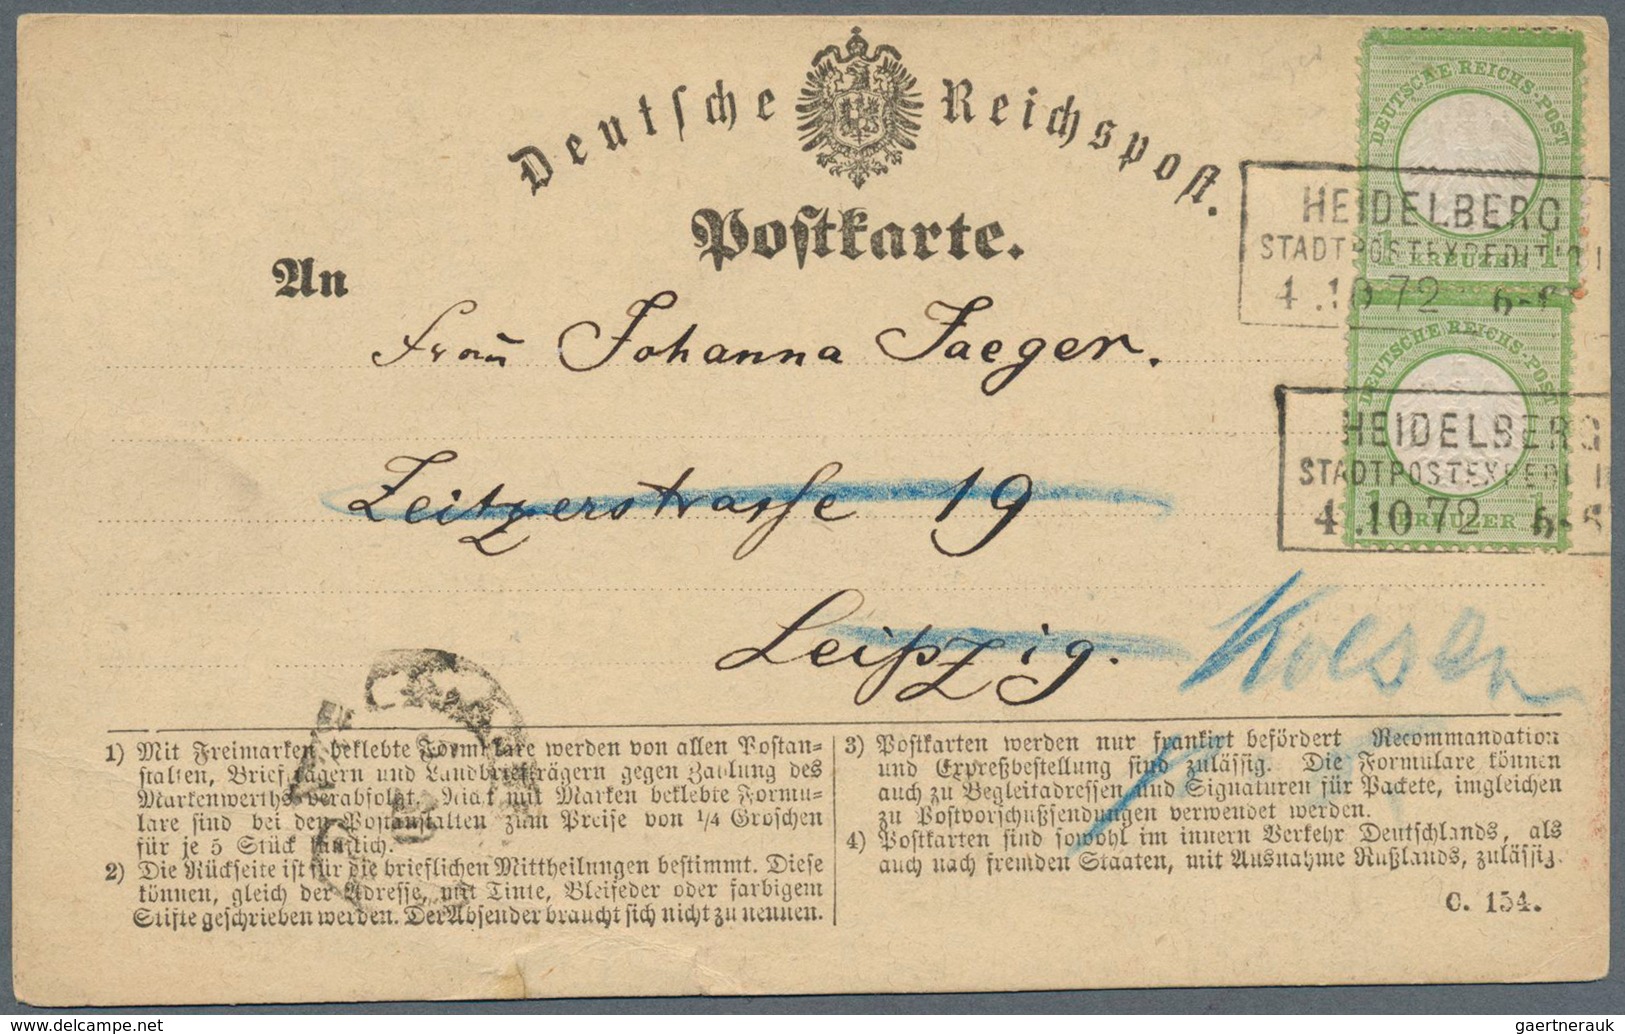 Deutsche Reichspost.
Postkarte.
DEUTSCHE REICHS-POST
1 KREUZER 1
HEIDELBERG
STADTPOSTEXPEDIT
4.10 72 6-
DEUTSCHE REICHS-POST
1 KREUZER 1
HEIDELBERG
STADTPOSTEXPED
4.10 72 6-
An
Frau Johanna Jaeger.
Zeitzerstrasse 19
Leipzig.
Koesen
1) Mit Freimarken beklebte Formulare werden von allen Postan-
stalten, Briefträgern und Landbriefträgern gegen Zahlung des
Markenwerths verabfolgt. Nicht mit Marken beklebte Formu-
lare sind bei den Postanstalten zum Preise von 1/4 Groschen
für je 5 Stück käuflich.
2) Die Rückseite ist für die brieflichen Mittheilungen bestimmt. Diese
können, gleich der Adresse, mit Tinte, Bleifeder oder farbigem
Stifte geschrieben werden. Der Absender braucht sich nicht zu nennen.
3) Postkarten werden nur frankirt befördert Recommandation
und Expreßbestellung sind zulässig. Die Formulare können
auch zu Begleitadressen und Signaturen für Packete, imgleichen
zu Postvorschußsendungen verwendet werden.
4) Postkarten sind sowohl im innern Verkehr Deutschlands, als
auch nach fremden Staaten, mit Ausnahme Rußlands, zulässig.
C. 154.
www.delcampe.net
gaertnerauk